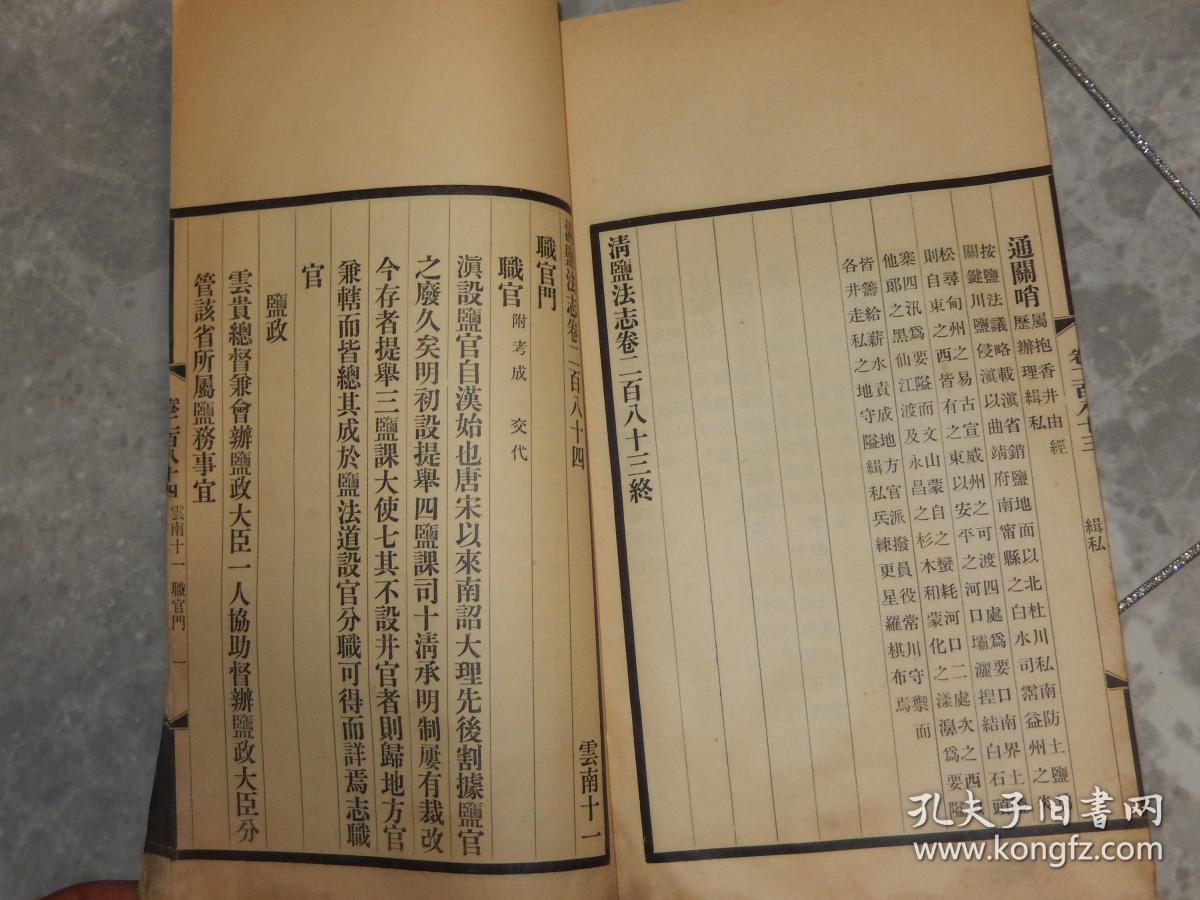 通關哨
屬抱香井由經
歷辦理緝私
按鹽法議略載滇省銷鹽地面以北杜川私南防土鹽
關鍵川鹽侵滇以曲靖府南甯縣之白水司霑益州之炎
松尋甸州之易古宣威州之可渡四處為要口南界土
則自東之西皆有之東以安平之河口壩灑揑結白石頭
寨四汛為要隘而文山蒙自之蠻耗河口二處次之西
他郎之黑仙江渡及永昌之杉木和蒙化之漾濞為要隘
皆籌給薪水責成地方官派撥員役常川守禦而
各井走私之地守隘緝私兵練更星羅棋布焉
清鹽法志卷二百八十三終
卷二百八十三
緝私
清鹽法志卷二百八十四
雲南十一
職官門
職官附考成 交代
滇設鹽官自漢始也唐宋以來南詔大理先後割據鹽官
之廢久矣明初設提舉四鹽課司十清承明制屢有裁改
今存者提舉三鹽課大使七其不設井官者則歸地方官
兼轄而皆總其成於鹽法道設官分職可得而詳焉志職
官
鹽政
雲貴總督兼會辦鹽政大臣一人協助督辦鹽政大臣分
管該省所屬鹽務事宜
卷二百八十四
雲南十一 職官門
一
孔夫子旧书网
www.kongfz.com